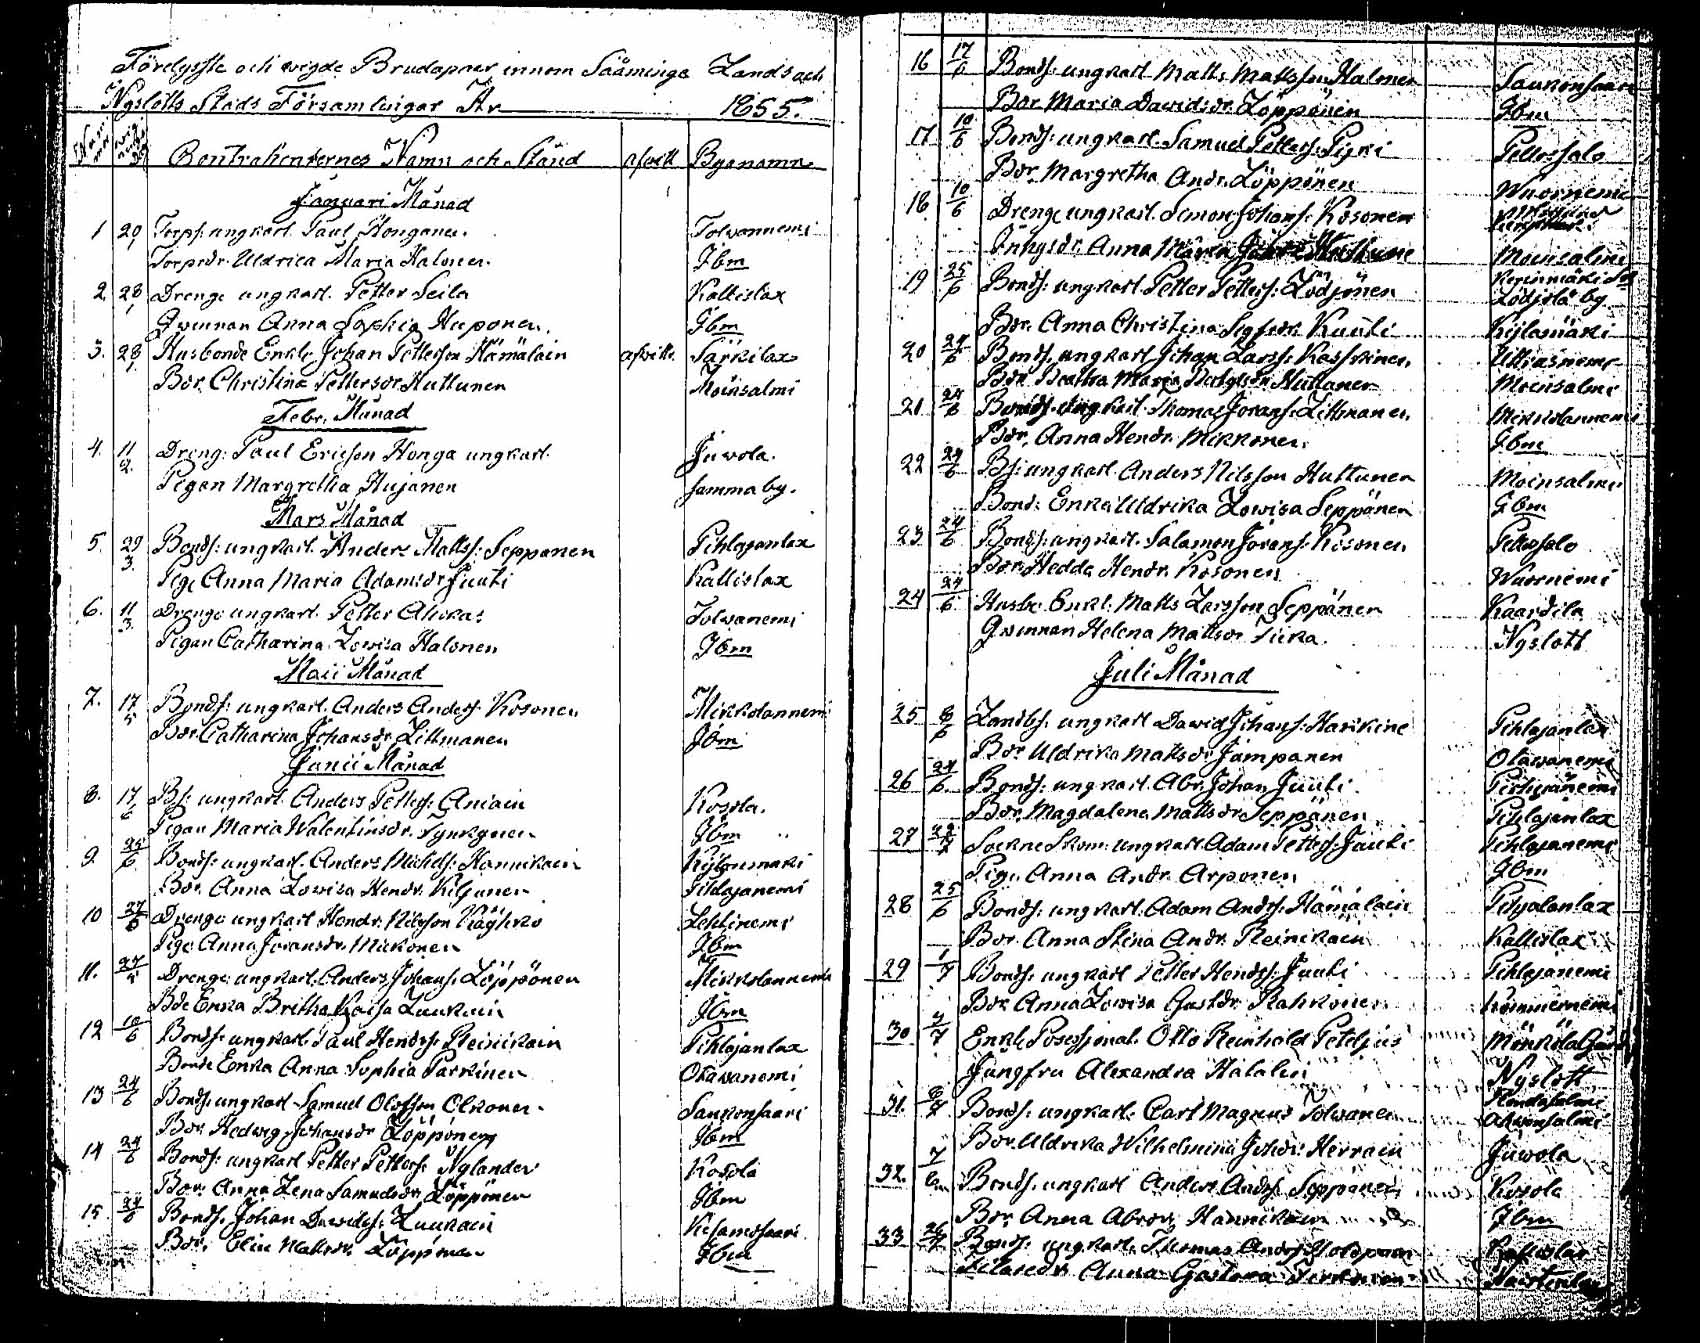 Förelyste och wigde Brudapaar innom Sääminge Lands och
Nyslotts Stads Församlingar År 1855.
Contrahenternes Namn och Stånd afvitt Byanamn
Januari Månad
1 20/1 Torps: ungkarl. Paul Honganen. Tolvannemi
Torpedr. Uldrica Maria Halonen. Ibm
2 28/1 Dreng ungkarl. Petter Seila Kallislax
Qvinnan Anna Sophia Huponen. Ibm
3. 28/1 Husbonde Enkl. Johan Pettersson Hämäläin afvitt. Särkilax
Bdr. Christina Pettersdr Huttunen Moinsalmi
Febr. Månad
4. 11/2. Dreng: Paul Ericsson Honga ungkarl. Juvola.
Pigan Margretha Hujanen samma by.
Mars Månad
5. 29/3. Bonds: ungkarl. Anders Matts: Sepponen Pihlajanlax
Pig. Anna Maria Adamsdr Juuti Kallislax
6. 11/3. Drenge ungkarl. Petter Ahokas Tolvanemi
Pigan Catharina Lowisa Halonen Ibm
Maii Månad
7. 17/5 Bonds: ungkarl. Anders Anders: Kosonen Mikkolannemi
Bdr. Catharina Johansdr Littmanen Ibm
Junii Månad
8. 17/6 Bs: ungkarl. Anders Petters: Aniain Kosola.
Pigan Maria Walentinsdr. Tynkynen Ibm
9. 25/6 Bonds: ungkarl. Anders Michels: Hannikain Kylänmäki
Bdr. Anna Lowisa Hendr. Kiljunen Pihlajanemi
10 27/6 Drenge ungkarl Hendr. Nilsson Käyhkö Lehtinemi
Pig. Anna Joransdr. Mikonen Ibm
11. Drenge ungkarl. Anders Johans: Löppönen Mikkolannemi
Bde Enka Britha Kaisa Luukain Ibm
12 10/6 Bonds: ungkarl. Paul Hendrs: Reinikain Pihlajanlax
Bonde Enka Anna Sophia Parkinen Otawanemi
13 24/6 Bonds: ungkarl. Samuel Olofsson Olkonen. Saukonsaari
Bdr. Hedwig Johansdr Löppönen Ibm
14 24/6 Bonds: ungkarl Petter Petters: Nylander Kosola
Bdr. Anna Lena Samuelsdr. Löppönen Ibm
15 24/6 Bonds. Johan Davids: Luukain
Bdr. Elin Matsdr. Löppönen Ibm
16 17/6 Bonds: ungkarl Matts Mattsson Halonen Saukonsaari
Bdr Maria Davidsdr. Löppönen Ibm
17 10/6 Bonds: ungkarl. Samuel Petters: Pyki Pellossalo
Bdr. Margretha Andr. Löppönen Wuornemi
18 10/6 Drenge ungkarl. Simon Johans: Kosonen
Inhysdr. Anna Maria Moinsalmi
19 25/6 Bonds: ungkarl. Petter Petters: Lödjönen Lödjölä by.
Bdr. Anna Christina Sigfrdr. Kuuti Kylämäki
20 24/6 Bonds. ungkarl Johan Larss: Kosonen
Bdr. Beatha Maria Huttunen Moinsalmi
21 24/6 Bonds. ungkarl. Thomas Jorans: Littmanen Mikkolannemi
Bdr. Anna Hendr. Mikkonen. Ibm
22 24/6 Bs: ungkarl. Anders Nilsson Huttunen Moinsalmi
Bond: Enka Uldrika Lowisa Seppönen Ibm
23 24/6 Bonds: ungkarl. Salamon Jorans: Kosonen Pellossalo
Bdr. Hedda Hendr. Kosonen Wuornemi
24 24/6 Husbe Enkl: Matts Larsson Seppänen Kaartila
Qvinnan Helena Mattsdr Tiika. Nyslott
Juli Månad
25 8/6 Landbs: ungkarl David Johans: Harikine Pihlajanlax
Bdr Uldrika Matsdr Jämpänen Otawanemi
26 24/6. Bonds: ungkarl. Abr. Johan Juuti Pihlajänemi
Bdr. Magdalena Mattsdr Seppänen Pihlajanlax
27 Sockne Skom: ungkarl Adam Petters: Juuti Pihlajanemi
Pig. Anna Andr. Arponen Ibm
28 25/6 Bonds: ungkarl. Adam Ands: Hämäläin Pihjalanlax
Bdr. Anna Stina Andr. Reinikain Kallislax
29 1/7 Bonds: ungkarl Petter Hendrs: Juuti Pihlajänemi
Bdr Anna Lowisa Gustdr. Rahkonen Kommernemi
30 Enkl. Posessjonat. Otto Reinhold Petelius Mönkölä Gård
Jungfru Alexandra Hälalin Nyslott
31. Bonds: ungkarl. Carl Magnus Tolvanen Ahvensalmi
Bdr. Uldrika Wilhelmina Johdr. Herrain Juvola
32. 7/6 Bonds: ungkarl Anders Ands: Seppänen Kosola
Bdr Anna Abrdr. Hannikain Ibm
33 Bonds: ungkarl. Thomas Anders: Holopain
Anna Gustava